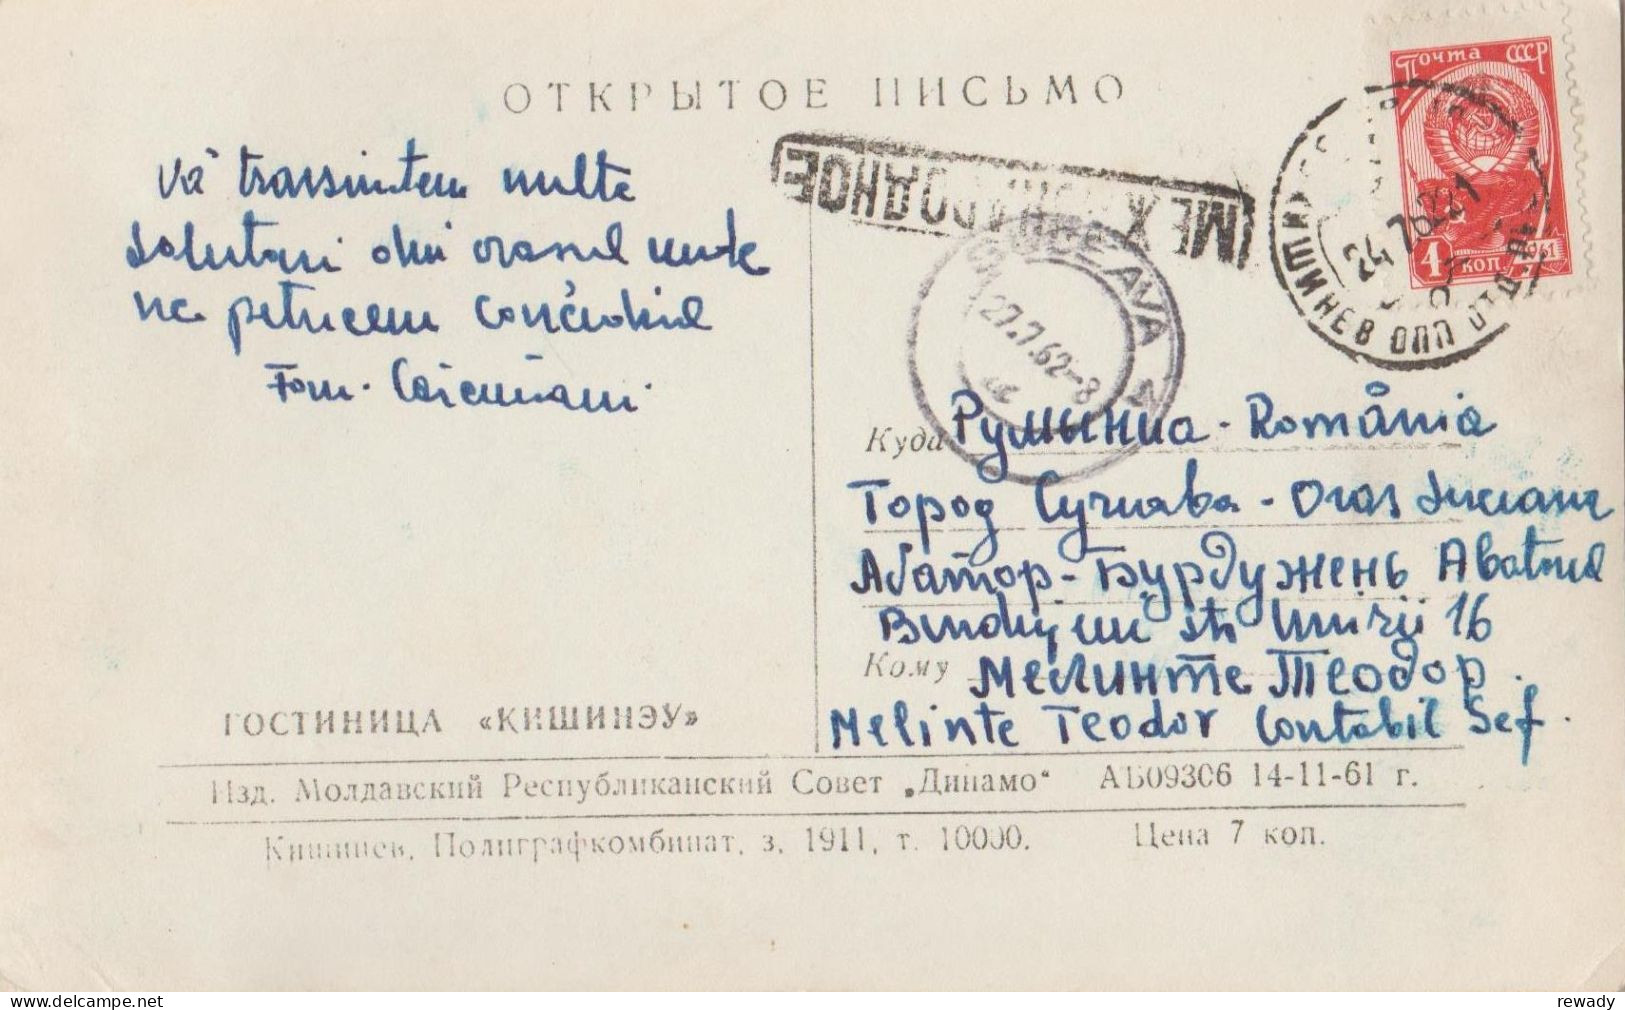 ОТКРЫТОЕ ПИСЬМО
Почта СССР
4 КОП
1961
МЕЖДУНАРОДНОЕ
КИШИНЕВ
24 7 62 21
SUCEAVA
27.7.62-8
Vă transmitem multe
salutari din orasul unde
ne petrecem concediul
Fam.
Куда Румыниа - România
Город Сучиава - Oras Suceava
Абатор - Бурдужень Abatorul
Burdujeni str Unirii 16
Кому Мелинте Теодор.
Melinte Teodor Contabil Sef.
ГОСТИНИЦА «КИШИНЭУ»
Изд. Молдавский Республиканский Совет „Динамо“ АБ09306 14-11-61 г.
Кишинев, Полиграфкомбинат, з. 1911, т. 10000. Цена 7 коп.
delcampe.net
rewady